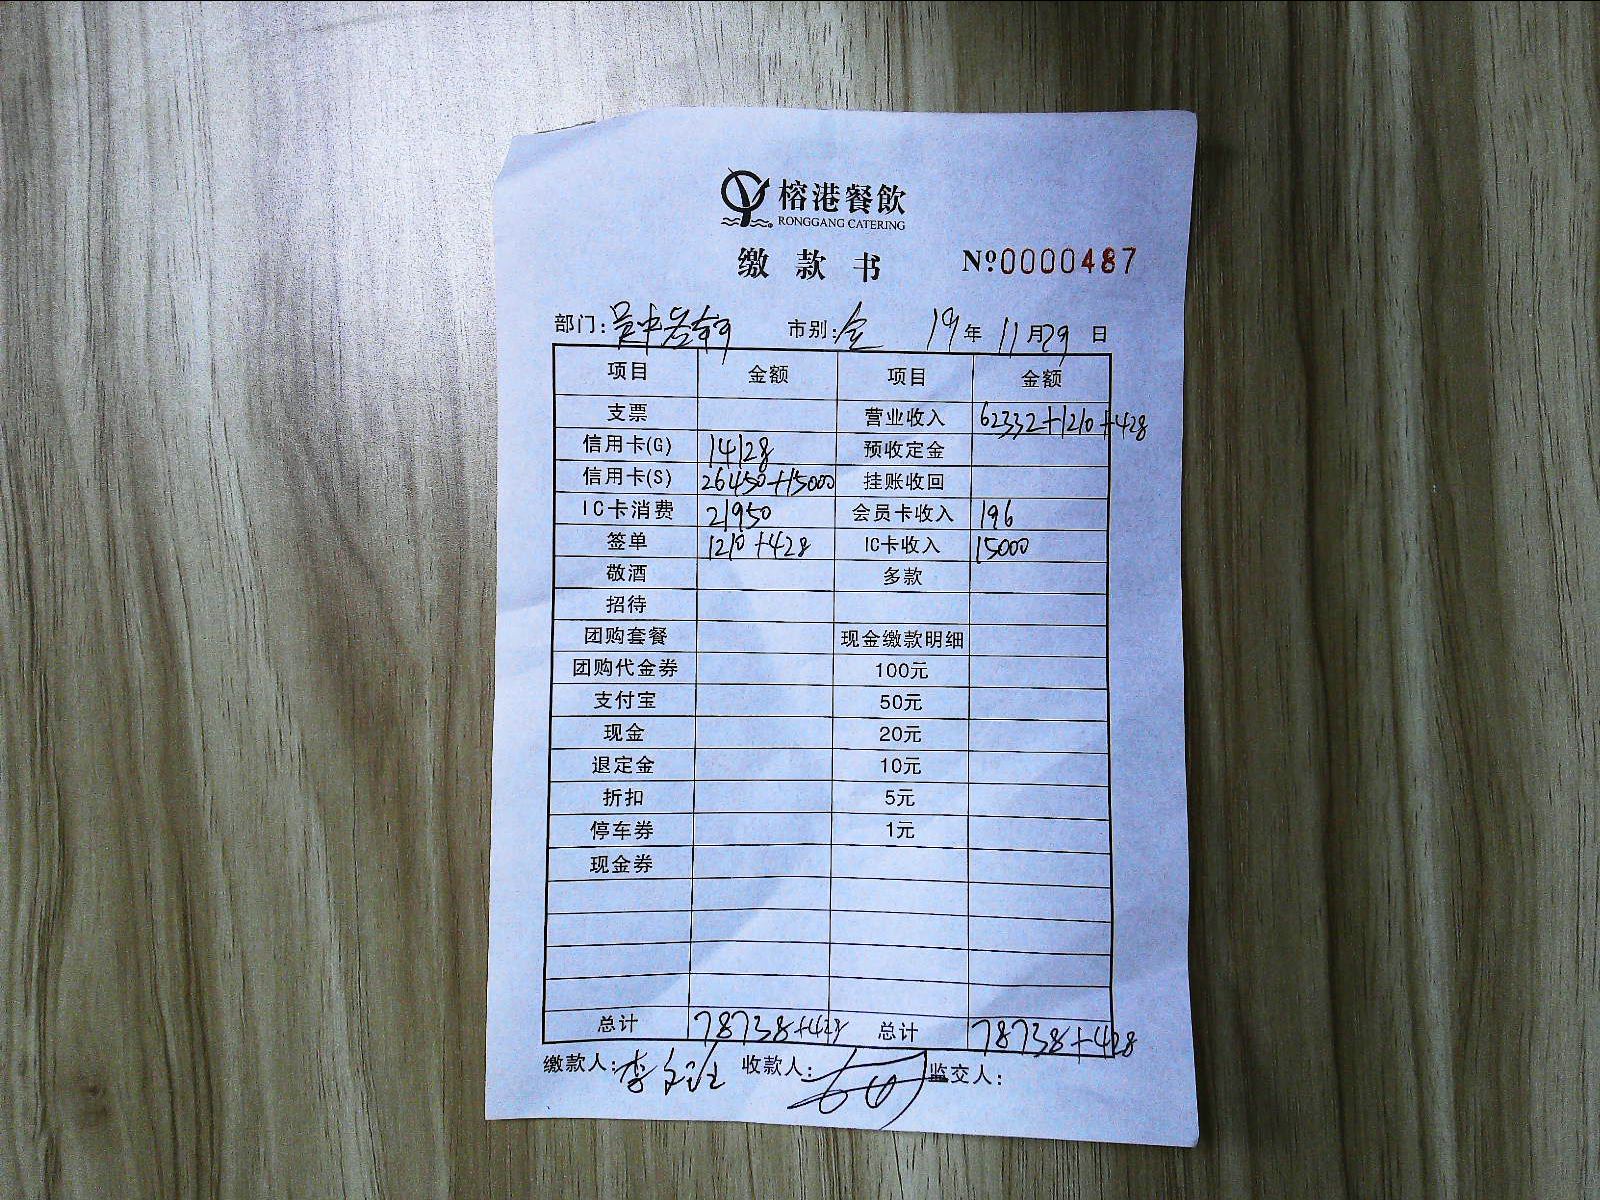 榕港餐飲
RONGGANG CATERING
缴款书 Nº0000487
部门: 市别:全 19年11月29日
项目 金额 项目 金额
支票 营业收入 62332+1210+428
信用卡(G) 14128 预收定金
信用卡(S) 26450+15000 挂账收回
IC卡消费 21950 会员卡收入 196
签单 1210+428 IC卡收入 15000
敬酒 多款
招待
团购套餐 现金缴款明细
团购代金券 100元
支付宝 50元
现金 20元
退定金 10元
折扣 5元
停车券 1元
现金券
总计 78738+428 总计 78738+428
缴款人:李 收款人: 监交人: